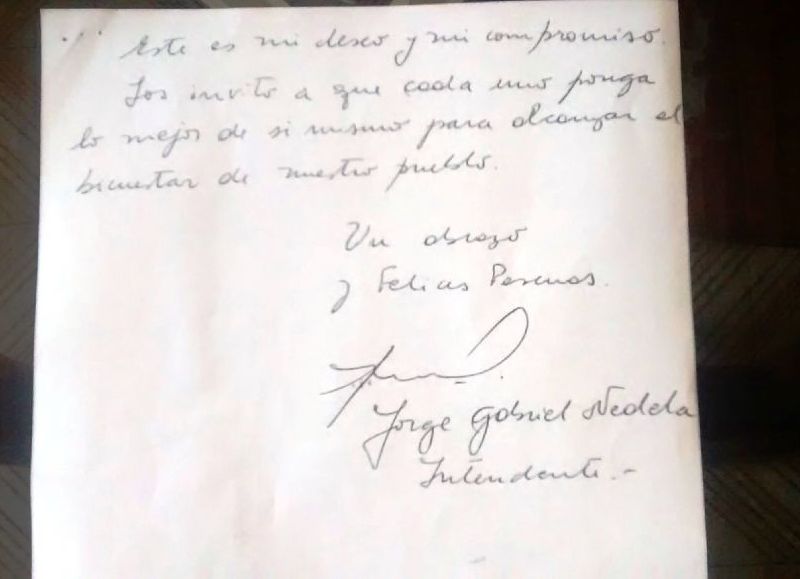 ... Este es mi deseo y mi compromiso.
Los invito a que cada uno ponga
lo mejor de si mismo para alcanzar el
bienestar de nuestro pueblo.
Un abrazo
y Felices Pascuas.
Jorge Gabriel Nedela
Intendente.-